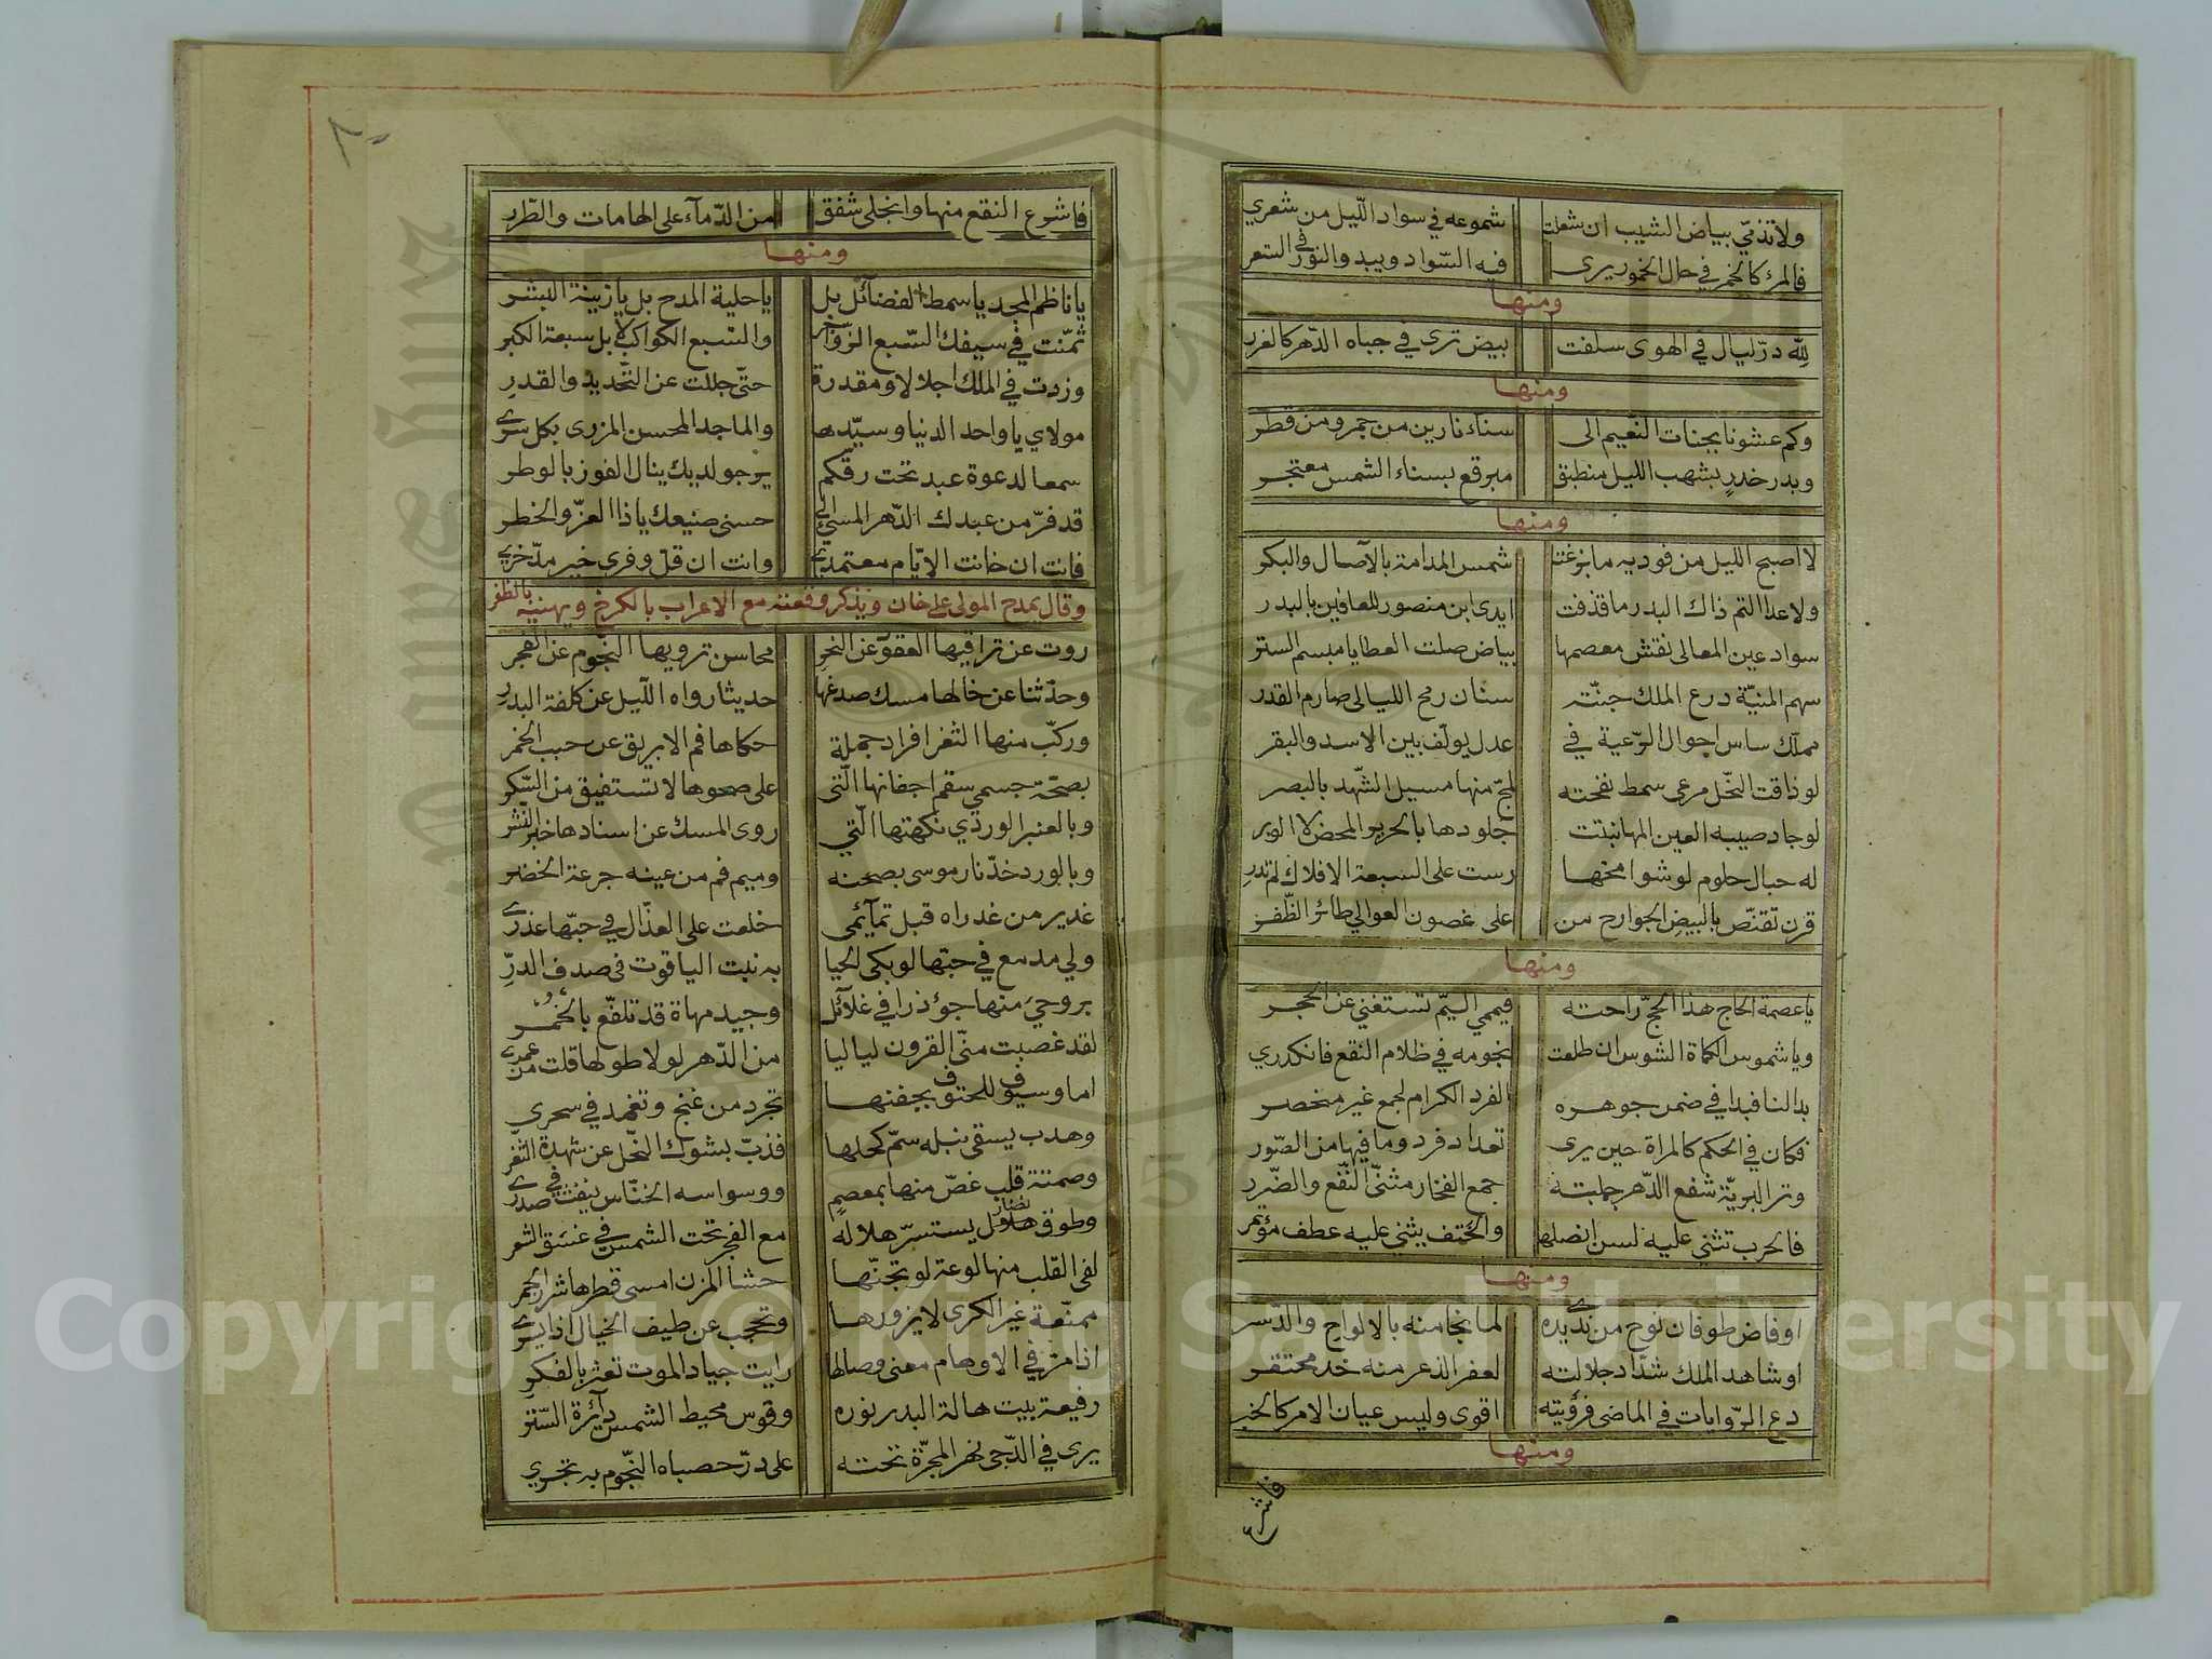 ولا تذمّي بياض الشيب ان شعلت شموعه في سواد اللّيل من شعري
فالمرٔ كالخمر في حال الخمور يرى فيه السّواد ويبدو النّور في السعر
ومنها
لِلّه درّ ليال في الهوى سلفت بيض ترى في جباه الدّهر كالغرر
ومنها
وكم عشونا بجنات النّعيم الى سناء نارين من جمر ومن قطر
وبدر خدرٍ بشهب الليل منطبق مبرقع بسناء الشمس معتجر
ومنها
لا اصبح الليل من فوديه ما بزغت شمس المدامة بالآصال والبكر
ولا عدا التم ذاك البدر ما قذفت ايدي ابن منصور للعافين بالبدر
سواد عين المعالي نقش معصمها بياض صلت العطايا مبسم الستر
سهم المنيّة درع الملك جنّته سنان رمح الليالي صارم القدر
مملّك ساس احوال الرّعية في عدل يولّف بين الاسد والبقر
لو ذاقت النّحل مرعى سمط نفحته لمجّ منها مسيل الشّهد بالبصر
لو جاد صيبه العين المها نبتت جلودها بالحرير المحض لا الوبر
له حبال حلوم لو شوامخها رست على السبعة الافلاك لم تدرِ
قرن تقنّص بالبيض الجوارح من على غصون العوالي طائر الظّفر
ومنها
يا عصمة الحاج هذا الحجّ راحته فيممي اليمّ تستغني عن الحجر
ويا شموس الكماة الشوس ان طلعت نجومه في ظلام النقع فانكدري
بدا لنا فبدا في ضمن جوهره الفرد الكرام لجمع غير منحصر
فكان في الحكم كالمراة حين يرى تعداد فرد وما فيها من الصّور
وتر البريّة شفع الدّهر جملته جمع الفخار مثنّى النّفع والضّرر
فالحرب تثني عليه لسن انصلها والحتف يثني عليه عطف مؤتمر
ومنها
او فاض طوفان نوح من يديه لما نجا منه بالالواح والدّسر
او شاهد الملك شدّاد جلالته لعفر الذعر منه خد محتقر
دع الرّوايات في الماضي فرؤيته اقوى وليس عيان الامر كالخبر
ومنها
فاشرع
٨٠
فاشرع النقع منها وانجلى شفق من الدّمآء على الهامات والطّرر
ومنها
يا ناظم المجد يا سمط الفضائل بل يا حلية المدح بل يا زينة البشر
ثمّنت في سيفك السّبع الزّواخر والسّبع الكواكب لا بل سبعة الكبر
وزدت في الملك اجلالا ومقدرة حتّى جللت عن التّحديد والقدرِ
مولاي يا واحد الدنيا وسيّدها والماجد المحسن المزري بكل سري
سمعا لدعوة عبد تحت رقكم يرجو لديك ينال الفوز بالوطر
قد فرّ من عبدك الدّهر المسئ الى حسنى صنيعك يا ذا العزّ والخطر
فانت ان خانت الايّام معتمدي وانت ان قلّ وفري خير مدّخري
وقال يمدح المولى علي خان ويذكر وقعته مع الاعراب بالكرخ ويهنيه بالظفر
روت عن تراقيها العقود عن النحر محاسن ترويها النّجوم عن الفجر
وحدّثنا عن خالها مسك صدغها حديثا رواه اللّيل عن كلفة البدر
وركّب منها الثغر افراد جملة حكاها فم الابريق عن حبب الخمر
بصحّة جسمي سقم اجفانها الّتي على صحوها لا تستفيق من السّكر
وبالعنبر الوردي نكهتها الّتي روى المسك عن اسنادها خبر النّشر
وبالورد خدّ نار موسى بصحنه وميم فم من عينه جرعة الخضر
غدير من غدراه قبل تمآئمي خلعت على العذّال في حبّها عذري
ولي مدمع في حبّها لو بكى الحيا به نبت الياقوت في صدف الدرّ
بروحيَ منها جؤذرا في غلآئل وجيد مهاة قد تلفّع بالخمر
لقد غصبت منّى القرون لياليا من الدّهر لولا طولها قلت من عمري
اما وسيوف للحتوف بجفنها تجرد من غنج وتغمد في سحري
وهدب يسقى نبله سمّ كحلها فذبّ بشوك النّحل عن شهدة الثغر
وصمتة قلب غصّ منها بمعصم ووسواسه الخنّاس ينفث في صدري
وطوق نضار يستسرّ هلاله مع الفجر تحت الشمس في غسق الشعر
لفى القلب منها لوعة لو تجنّها حشا المزن امسى قطرها شرر الجمر
ممنّعة غير الكرى لا يزورها وتحجب عن طيف الخيال اذا يسري
اذا مرّ في الاوهام معنى وصالها رايت جياد الموت تعثر بالفكر
رفيعة بيت هالة البدر نوره وقوس محيط الشمس دآئرة السّتر
يرى في الدّجى نهر المجرّة تحته على درّ حصباء النّجوم به تجري